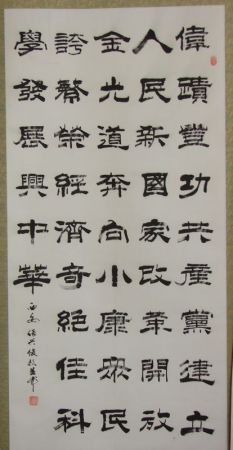 偉蹟豐功共產黨建立
人民新國家改革開放
金光道奔向小康眾民
誇繁榮經濟奇絕佳科
學發展興中華
西安